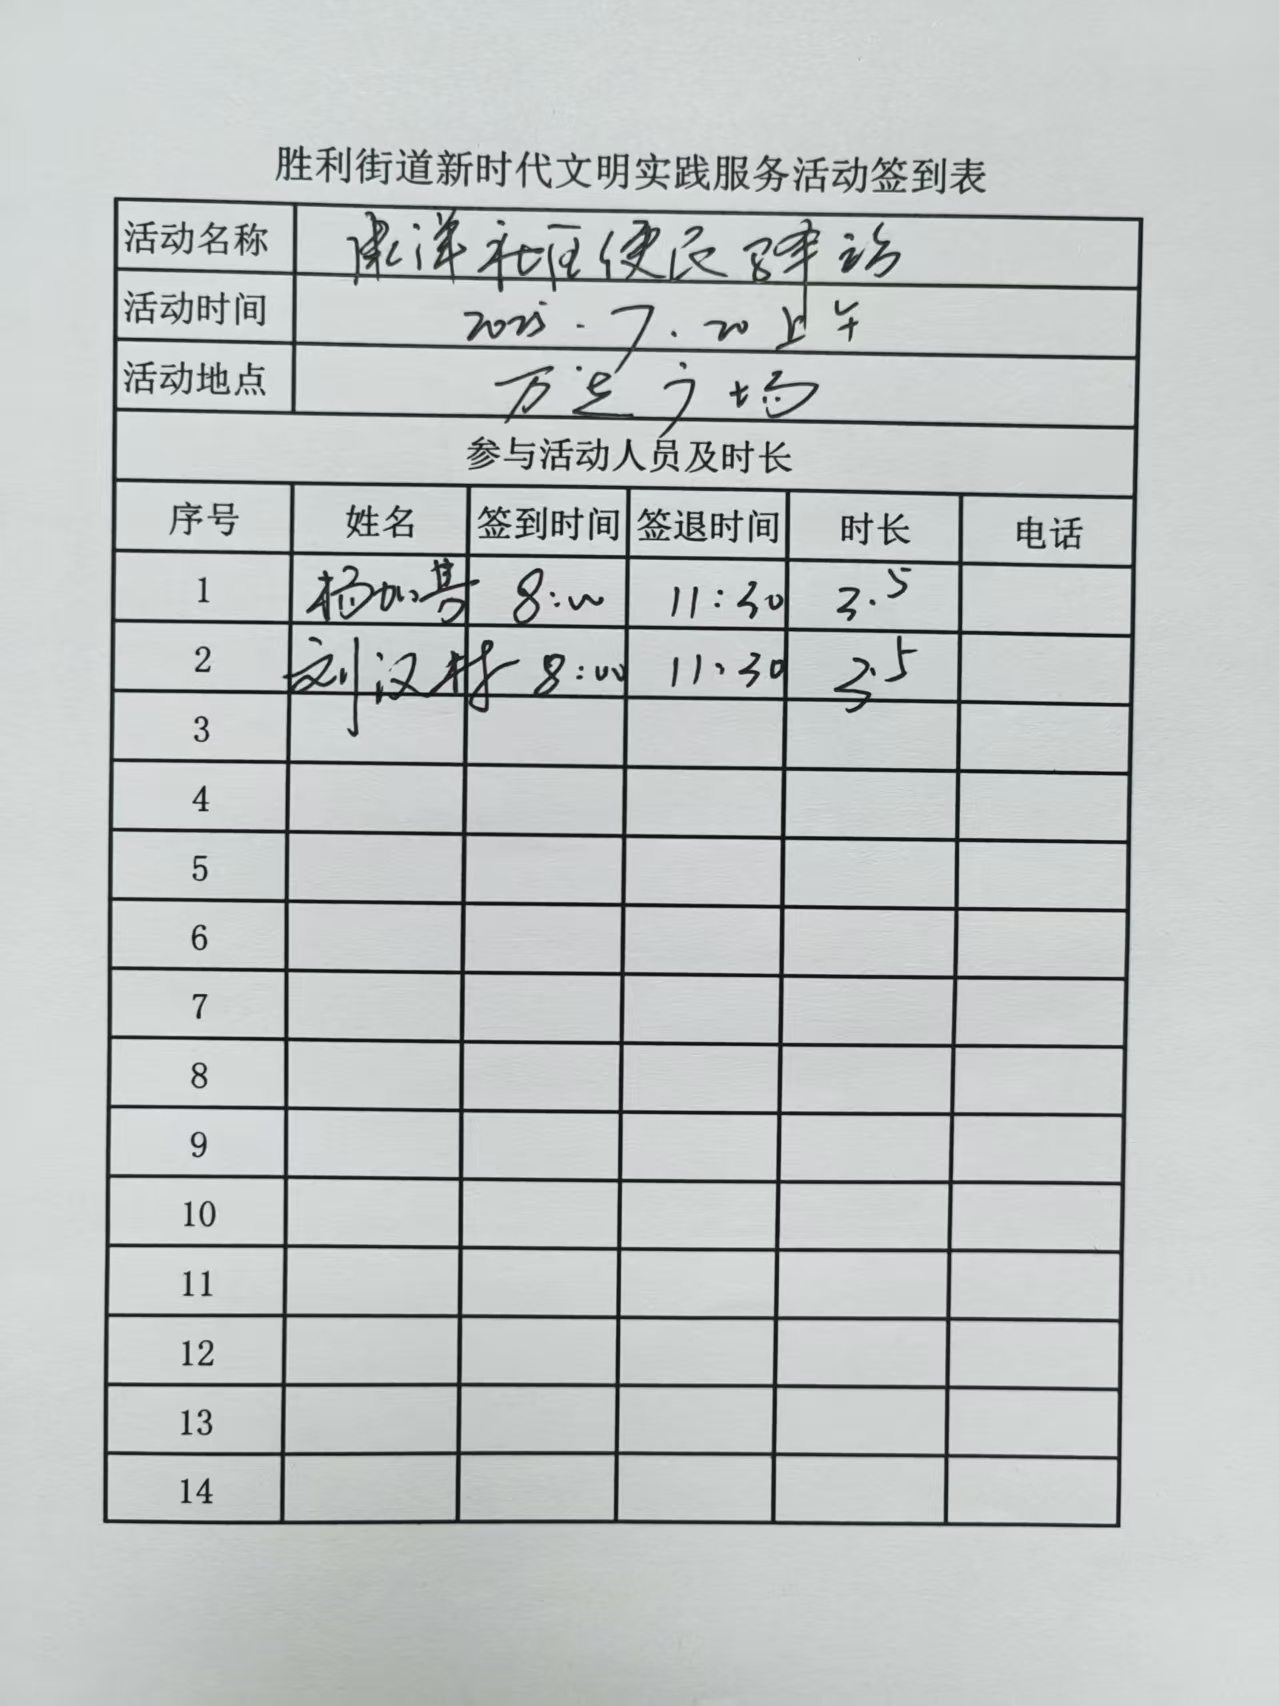 胜利街道新时代文明实践服务活动签到表
活动名称 社区便民驿站
活动时间 2025.7.20上午
活动地点 万达广场
参与活动人员及时长
序号 姓名 签到时间 签退时间 时长 电话
1 杨 8:00 11:30 3.5
2 刘汉村 8:00 11:30 3.5
3
4
5
6
7
8
9
10
11
12
13
14